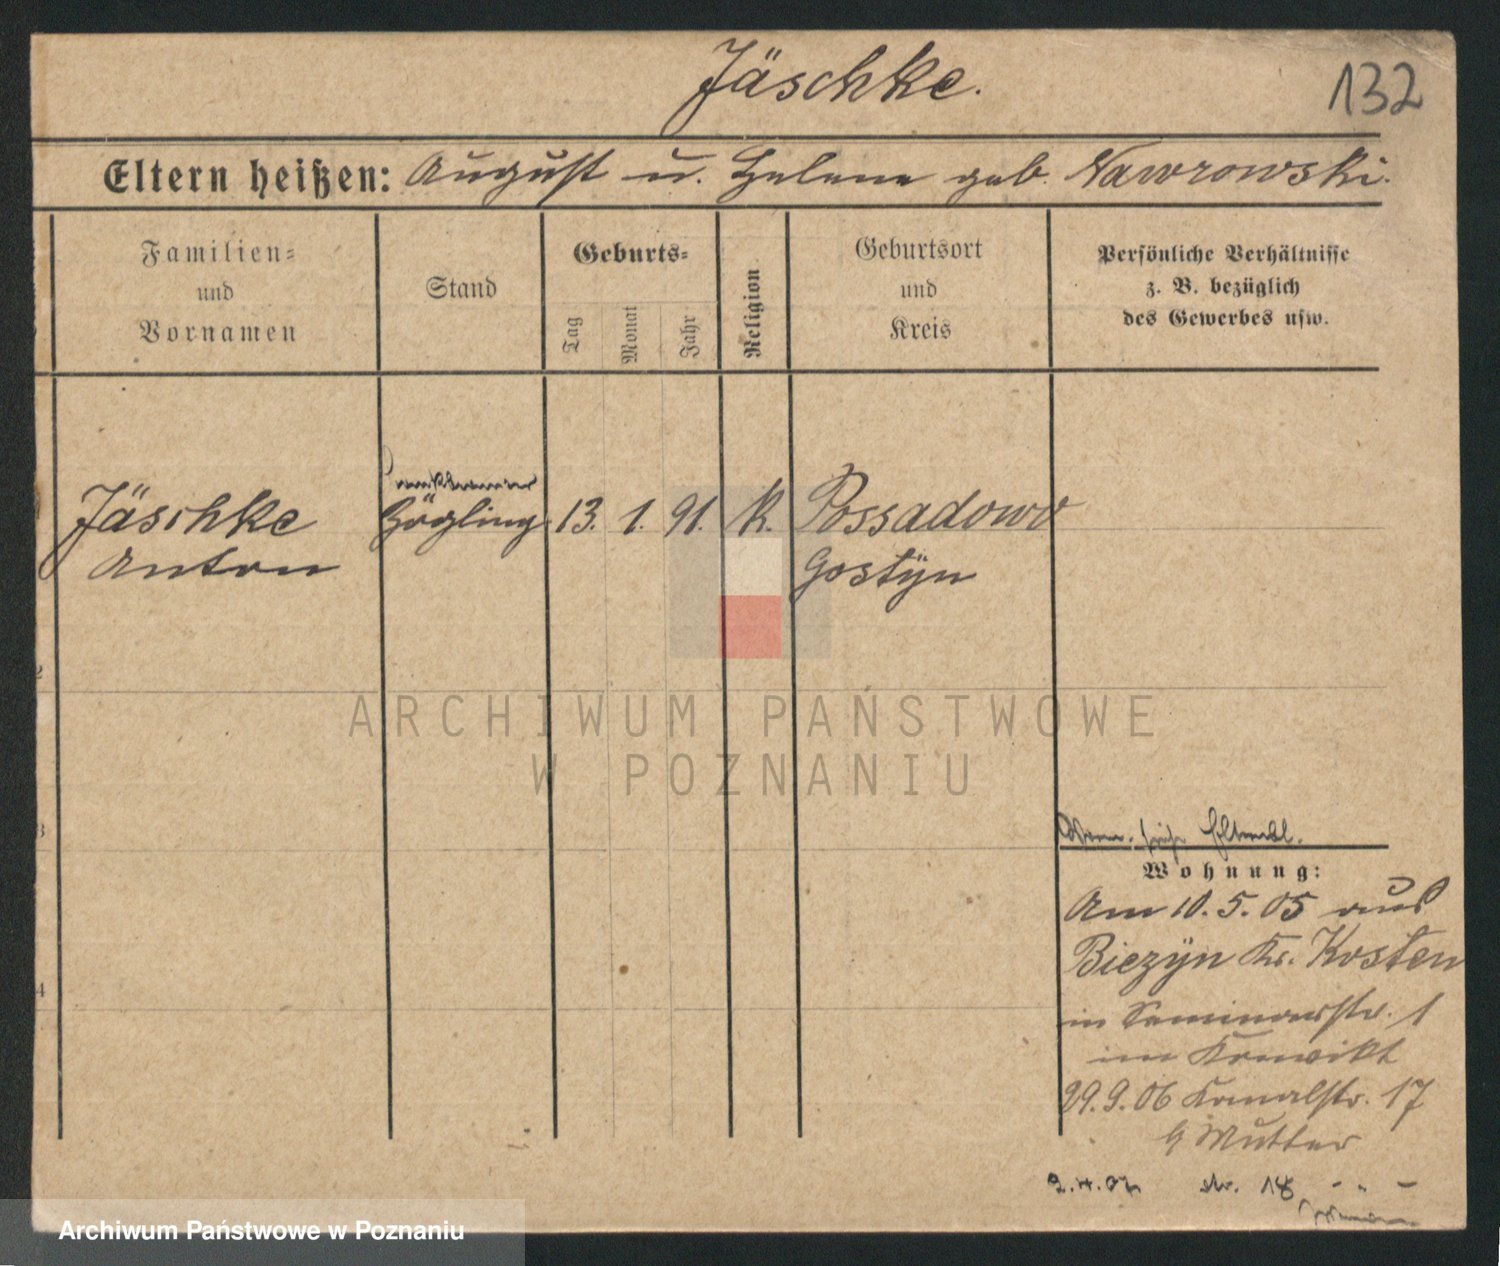 Jäschke.
132
Eltern heißen: August u. Helene geb. Nawrowski.
Familien=
und
Vornamen
Stand
Geburts=
Tag
Monat
Jahr
Religion
Geburtsort
und
Kreis
Persönliche Verhältnisse
z. B. bezüglich
des Gewerbes usw.
Jäschke
Anton
Zögling
13. 1. 91. k.
Possadowo
Gostÿn
2
3
4
Wohnung:
Am 10.5.05 aus
Biezÿn Kr. Kosten
in Seminarstr. 1
im Konvikt
29.9.06 Kanalstr. 17
Mutter
2.4.07 str. 18 - " -
ARCHIWUM PAŃSTWOWE
W POZNANIU
Archiwum Państwowe w Poznaniu